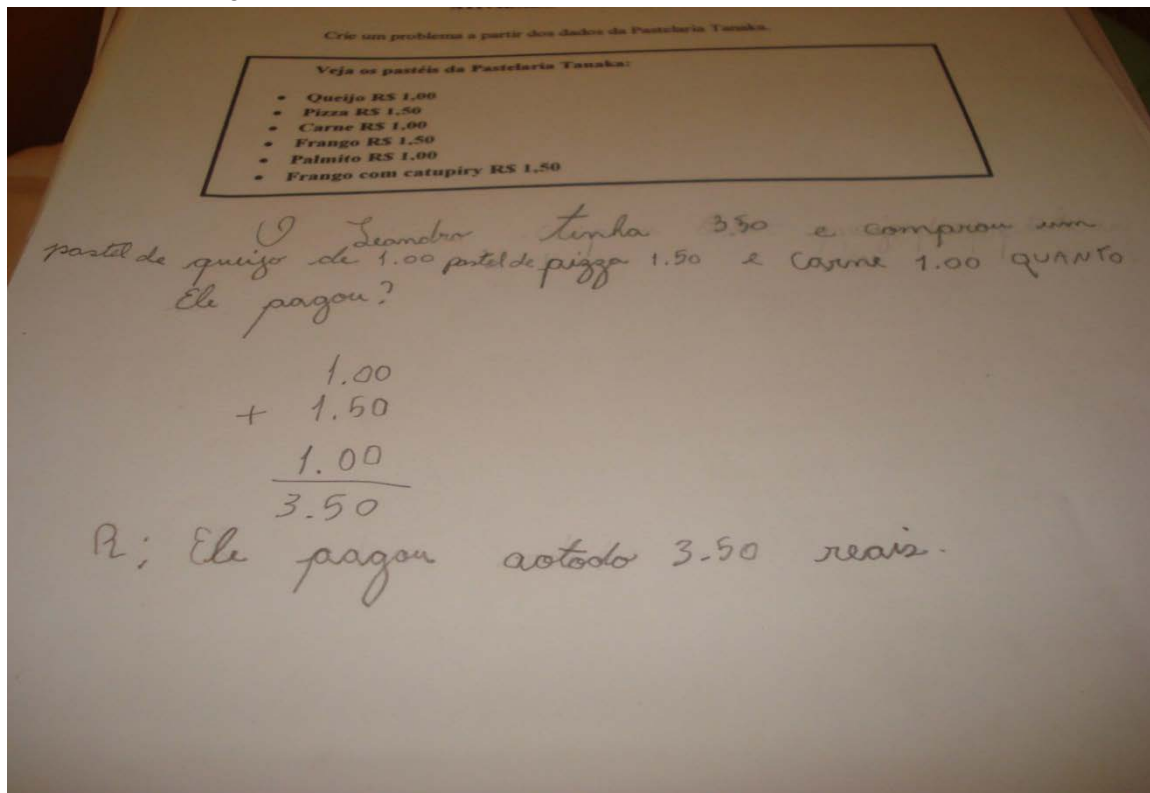 Crie um problema a partir dos dados da Pastelaria Tanaka.
Veja os pastéis da Pastelaria Tanaka:
• Queijo R$ 1,00
• Pizza R$ 1,50
• Carne R$ 1,00
• Frango R$ 1,50
• Palmito R$ 1,00
• Frango com catupiry R$ 1,50
O Leandro tinha 3.50 e comprou um
pastel de queijo de 1.00 pastel de pizza 1.50 e carne 1.00 QUANTO
Ele pagou?
1.00
+ 1.50
1.00
3.50
R; Ele pagou aotodo 3.50 reais.